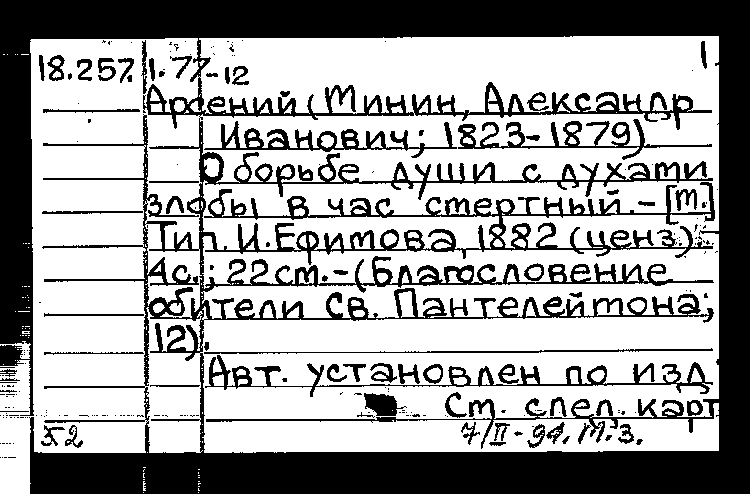 18.257. 1.77-12 1.
Арсений (Минин, Александр
Иванович; 1823-1879)
О борьбе души с духами
злобы в час смертный. - [М.]
Тип. И. Ефимова, 1882 (ценз). -
4с.; 22см. - (Благословение
обители Св. Пантелеймона;
12).
Авт. установлен по изд
См. след. карт
52 7/II-94. М.З.